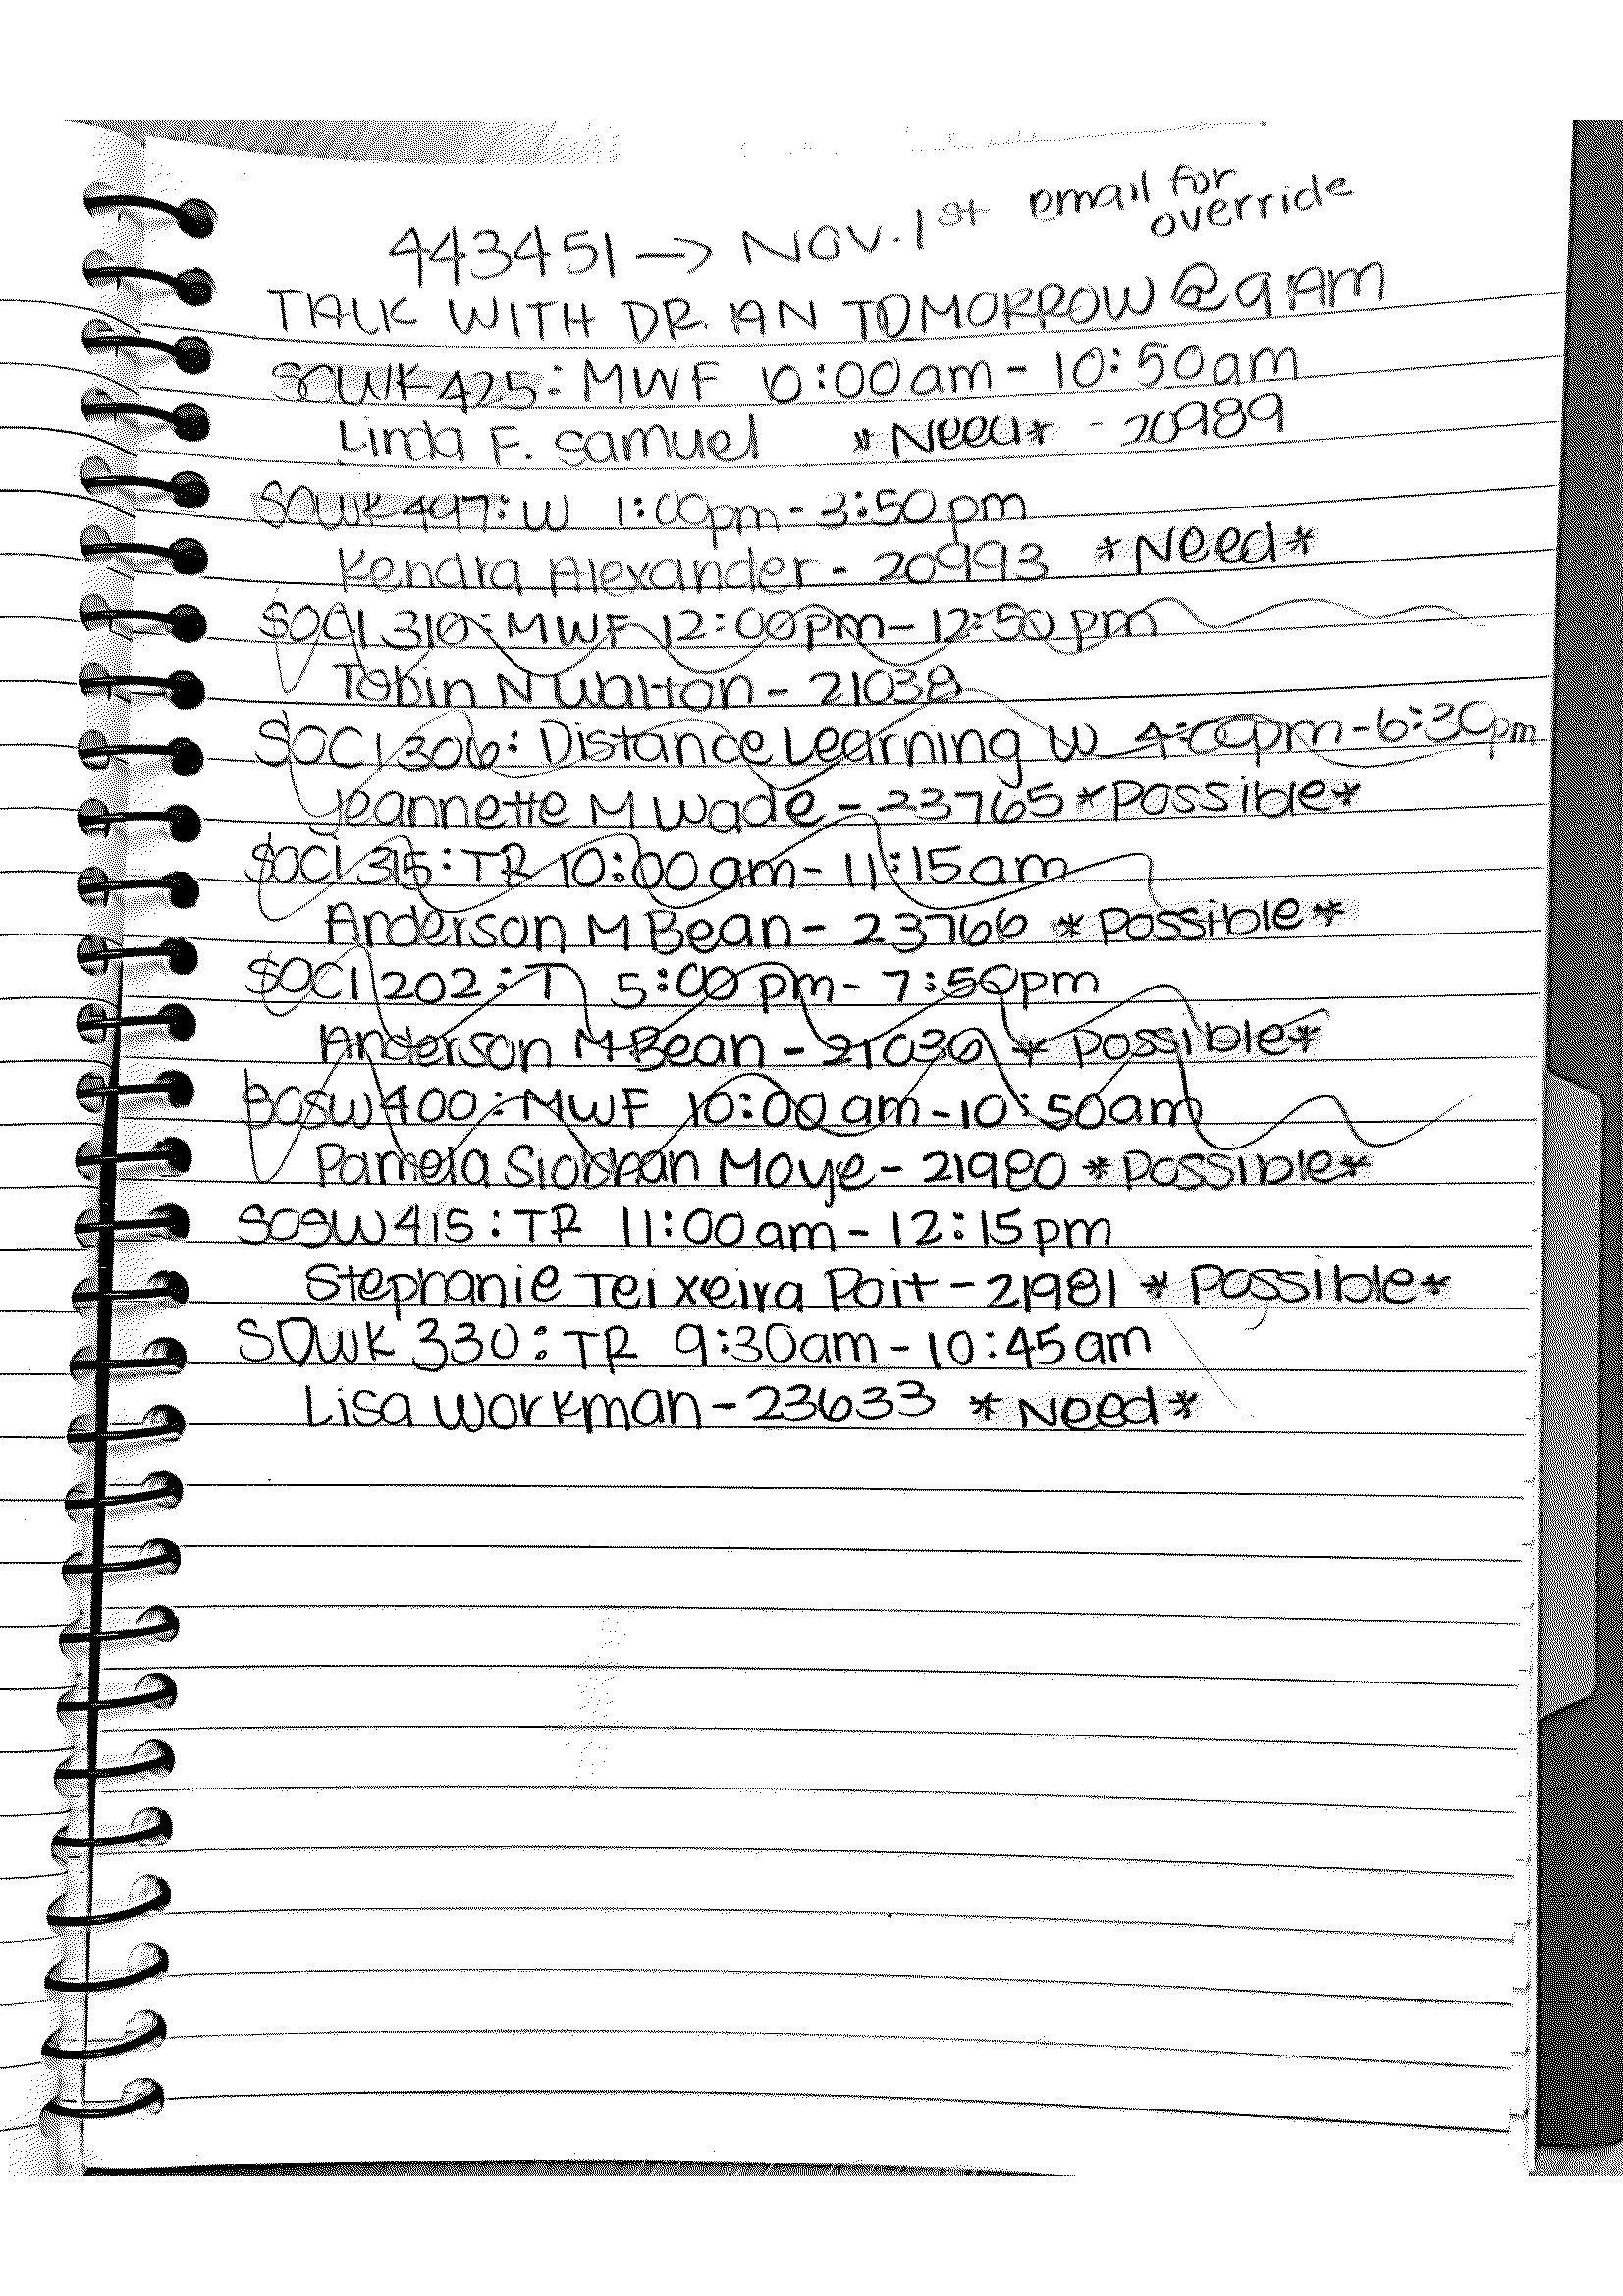 443451 → NOV. 1st email for override
TALK WITH DR. IAN TOMORROW @ 9AM
SOWK 425: MWF 10:00am - 10:50am
Linda F. Samuel *Need* - 20989
SOWK 497: W 1:00pm - 3:50pm
Kendra Alexander - 20993 *Need*
SOCI 310: MWF 12:00pm - 12:50pm
Tobin N Walton - 21038
SOCI 306: Distance Learning W 4:00pm - 6:30pm
Jeannette M Wade - 23765 *Possible*
SOCI 315: TR 10:00am - 11:15am
Anderson M Bean - 23766 *Possible*
SOCI 202: T 5:00pm - 7:50pm
Anderson M Bean - 21036 *Possible*
SOSW 400: MWF 10:00am - 10:50am
Pamela Siobhan Moye - 21980 *Possible*
SOSW 415: TR 11:00am - 12:15pm
Stephanie Teixeira Poit - 21981 *Possible*
SOWK 330: TR 9:30am - 10:45am
Lisa Workman - 23633 *Need*